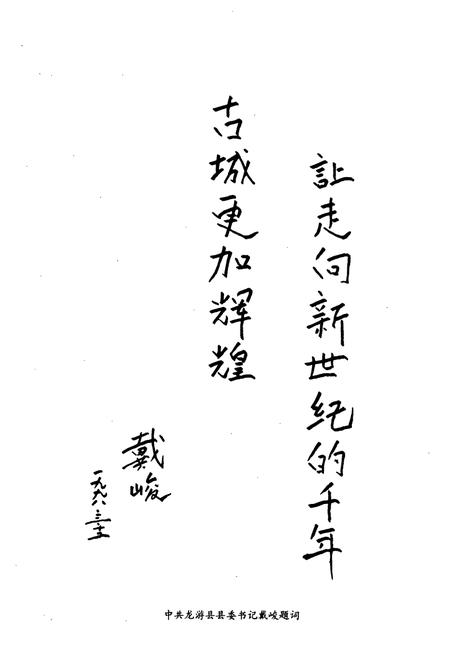 让走向新世纪的千年
古城更加辉煌
戴峻
一九九八.三.十五
中共龙游县县委书记戴峻题词